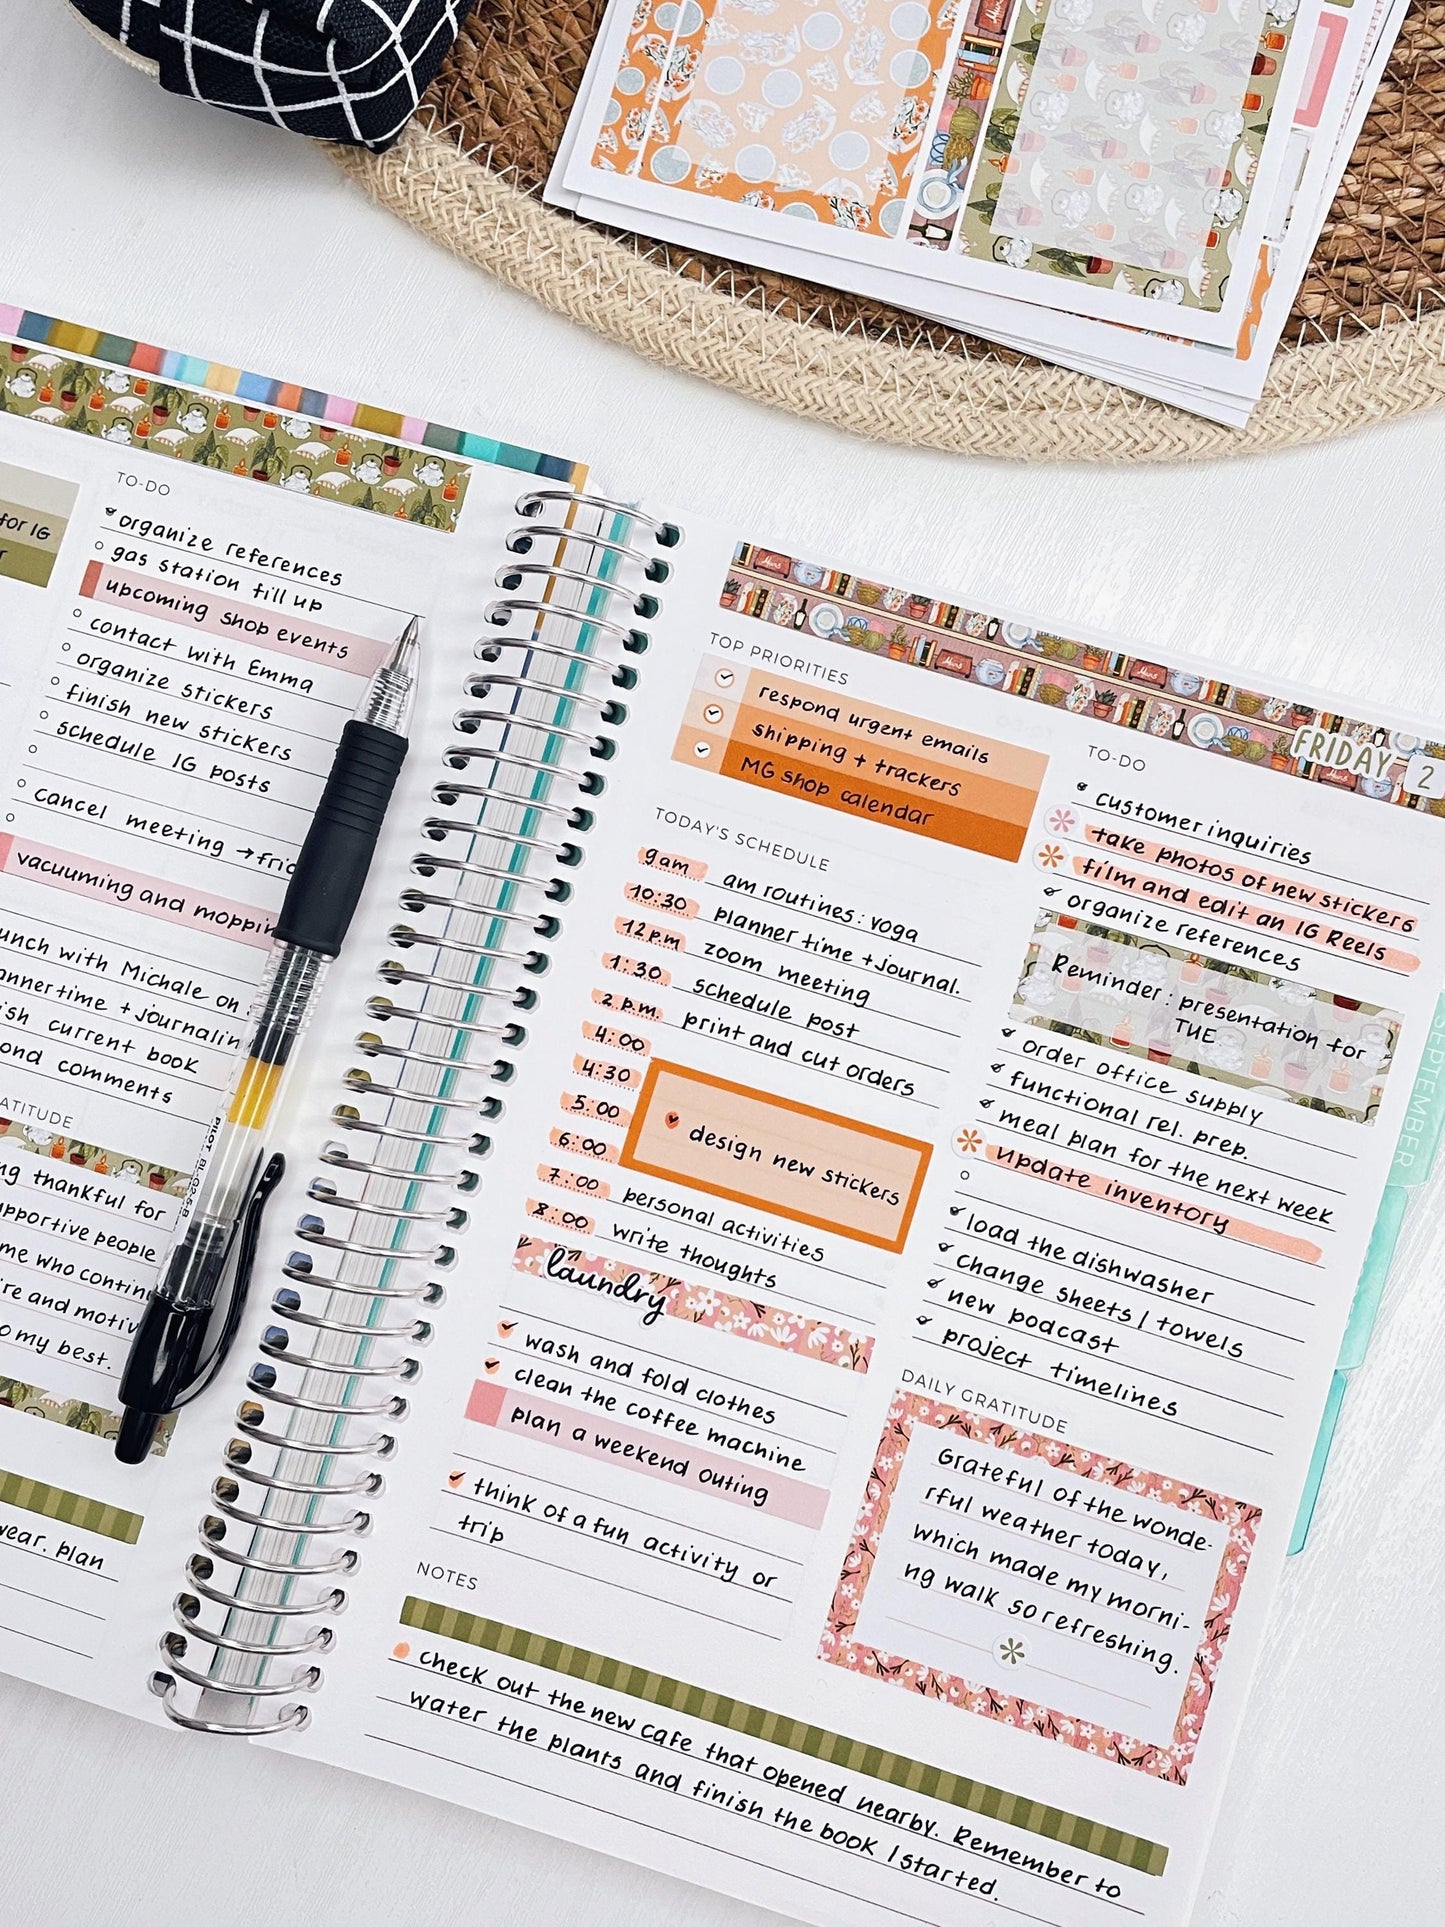 for IG
TO-DO
organize references
gas station fill up
upcoming shop events
contact with Emma
organize stickers
finish new stickers
schedule IG posts
cancel meeting →frid
vacuuming and moppin
unch with Michale on
annertime + journalin
ish current book
ond comments
ATITUDE
ng thankful for
upportive people
me who contin
re and motiv
o my best.
wear. plan
PILOT BL-G2-5-B
TOP PRIORITIES
respond urgent emails
shipping + trackers
MG shop calendar
TODAY'S SCHEDULE
9am am routines: yoga
10:30 planner time + journal.
12pm zoom meeting
1:30 schedule post
2 p.m. print and cut orders
4:00
4:30
5:00 design new stickers
6:00
7:00 personal activities
8:00 write thoughts
laundry
wash and fold clothes
clean the coffee machine
plan a weekend outing
think of a fun activity or
trip
FRIDAY 2
TO-DO
customer inquiries
take photos of new stickers
film and edit an IG Reels
organize references
Reminder: presentation for
TUE
order office supply
functional rel. prep.
meal plan for the next week
update inventory
load the dishwasher
change sheets / towels
new podcast
project timelines
DAILY GRATITUDE
Grateful of the wonde-
rful weather today,
which made my morni-
ng walk so refreshing.
NOTES
check out the new cafe that opened nearby. Remember to
water the plants and finish the book I started.
SEPTEMBER